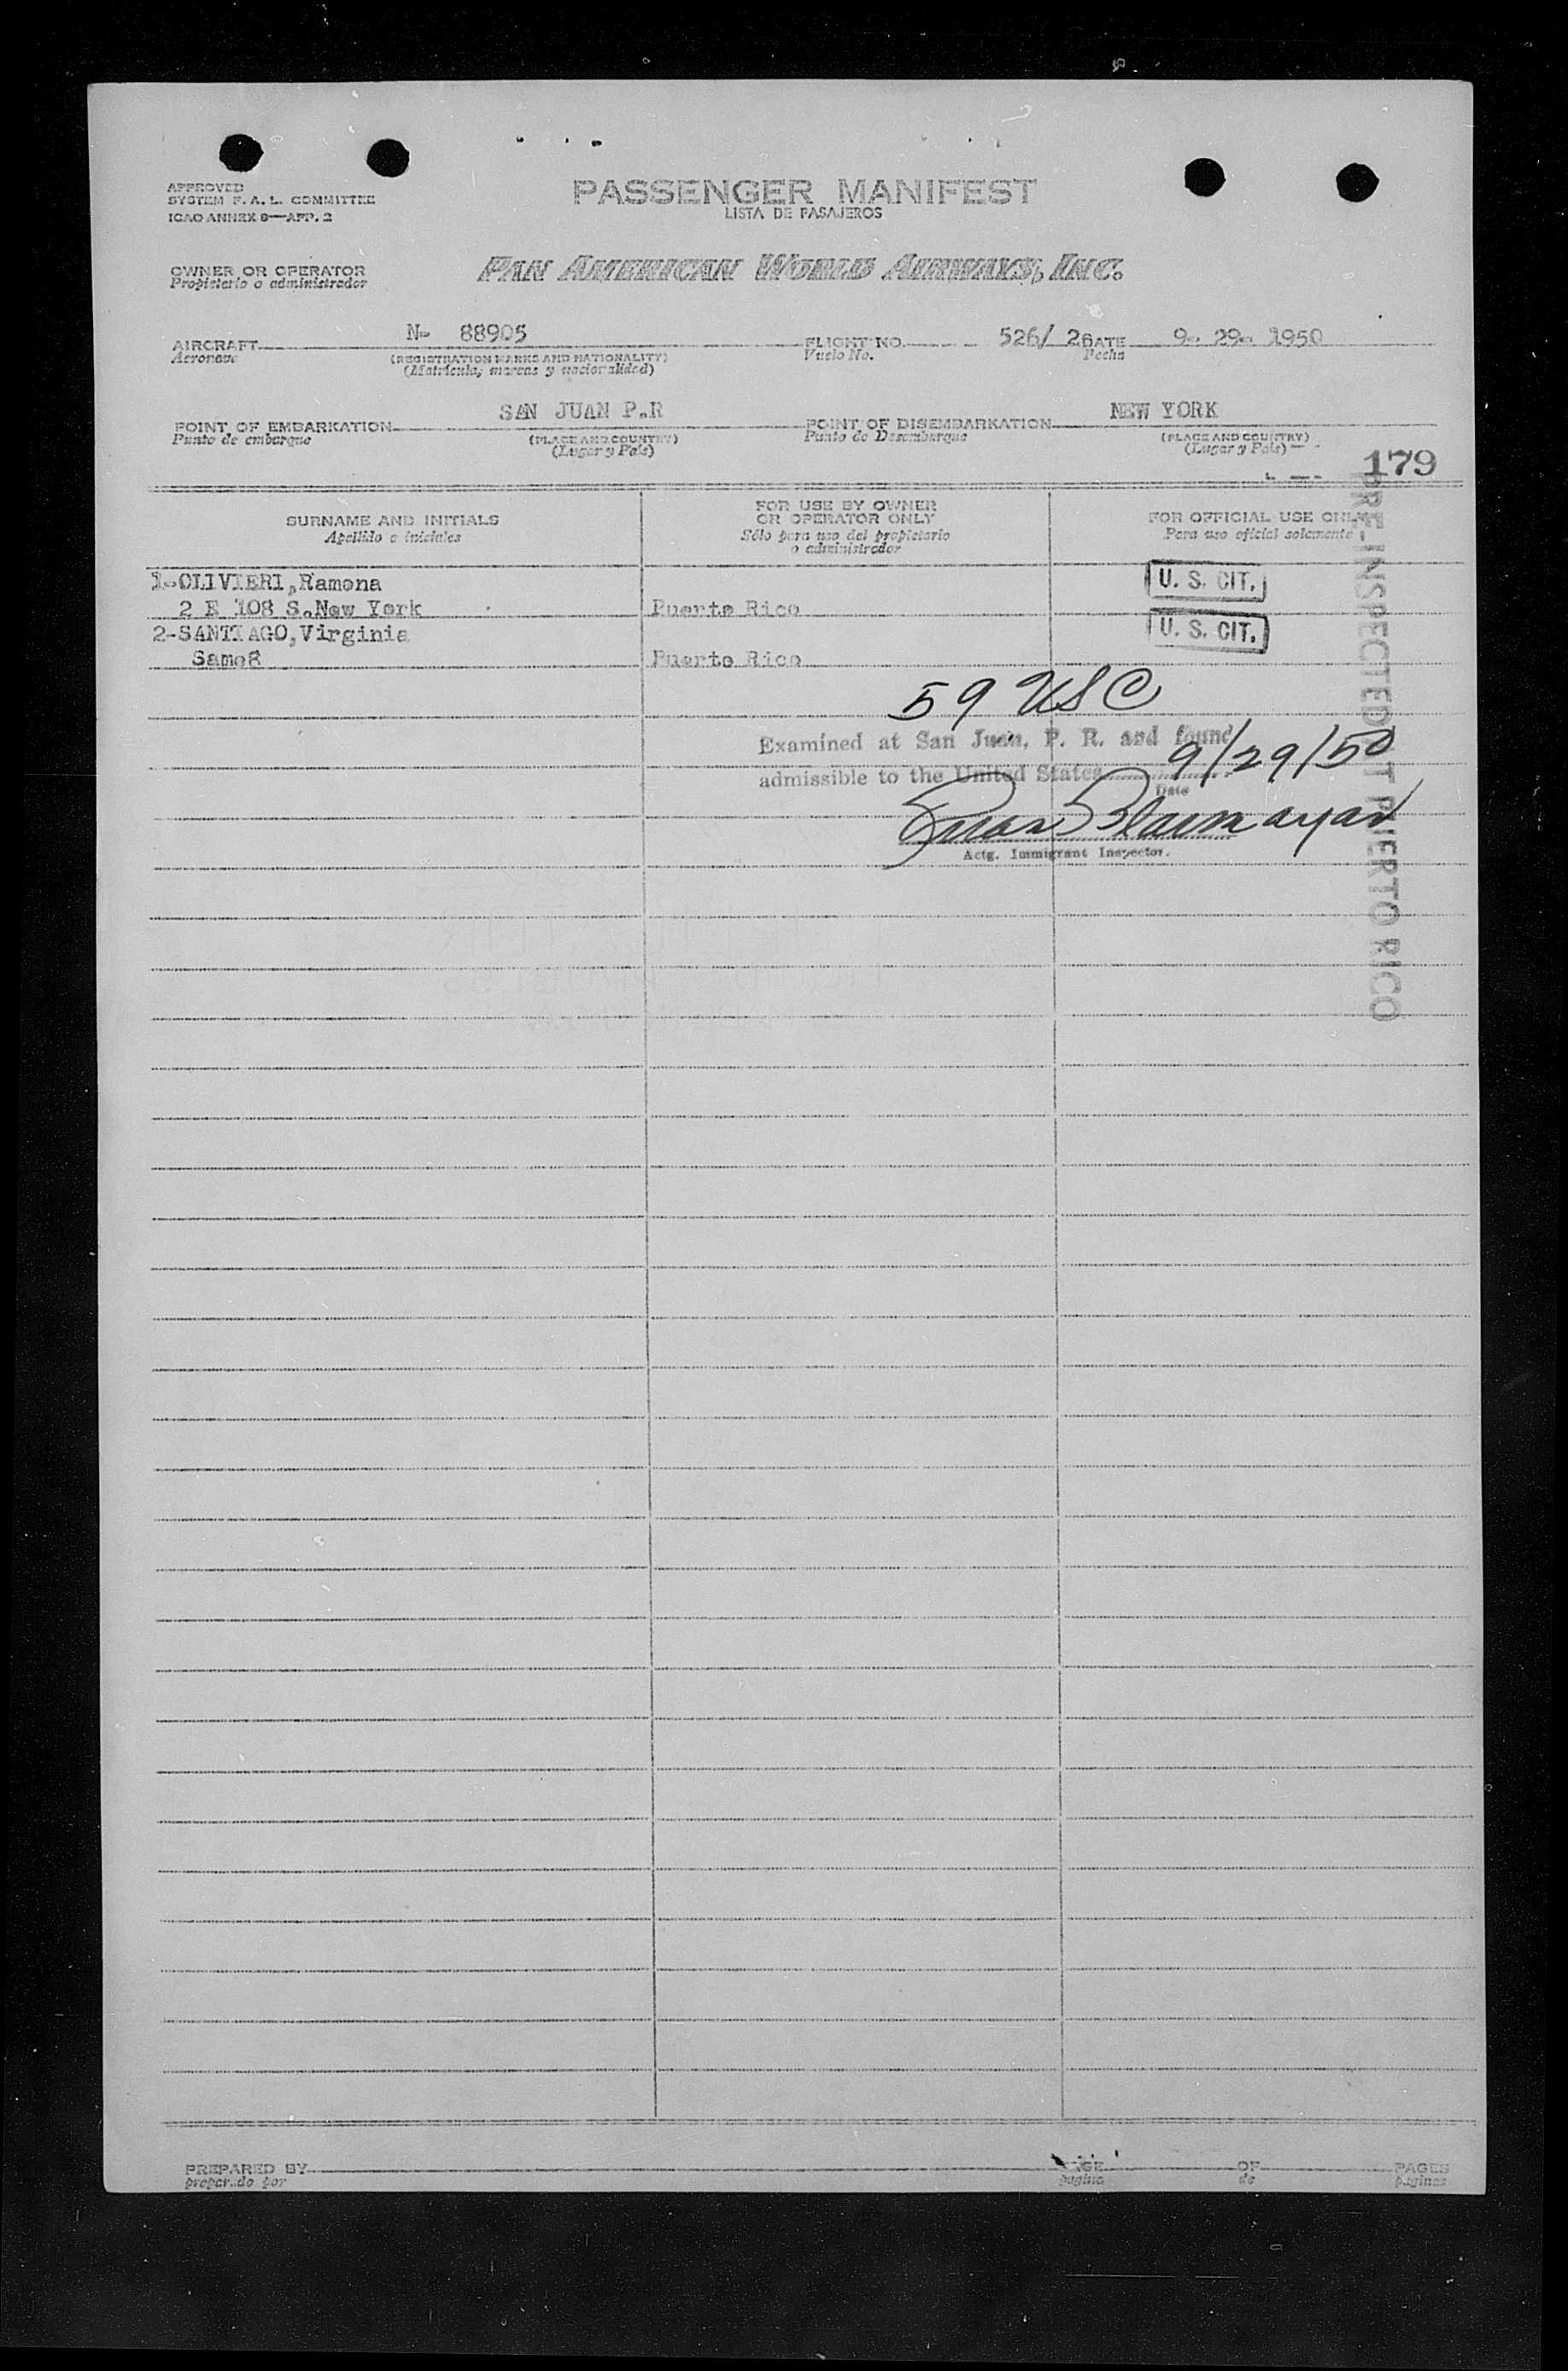 APPROVED
SYSTEM F. A. L. COMMITTEE
ICAO ANNEX 9—APP. 2
PASSENGER MANIFEST
LISTA DE PASAJEROS
OWNER OR OPERATOR
Propietario o administrador
PAN AMERICAN WORLD AIRWAYS, INC.
AIRCRAFT N- 88905 FLIGHT NO. 526/ 28 DATE 9- 29- 1950
Aeronave (REGISTRATION MARKS AND NATIONALITY) Vuelo No. Fecha
(Matrícula, marcas y nacionalidad)
POINT OF EMBARKATION SAN JUAN P.R POINT OF DISEMBARKATION NEW YORK
Punto de embarque (PLACE AND COUNTRY) Punto de Desembarque (PLACE AND COUNTRY)
(Lugar y País) (Lugar y País)
179
SURNAME AND INITIALS
Apellido e iniciales
FOR USE BY OWNER
OR OPERATOR ONLY
Sólo para uso del propietario
o administrador
FOR OFFICIAL USE ONLY
Para uso oficial solamente
1-OLIVIERI,Ramona U. S. CIT.
2 E 108 S.New York Puerto Rico
2-SANTIAGO,Virginia U. S. CIT.
Same8 Puerto Rico
59 USC
Examined at San Juan, P. R. and found
admissible to the United States 9/29/50
Date
Juan
Actg. Immigrant Inspector.
PRE-INSPECTED AT PUERTO RICO
PREPARED BY PAGE OF PAGES
preparado por pagina de páginas